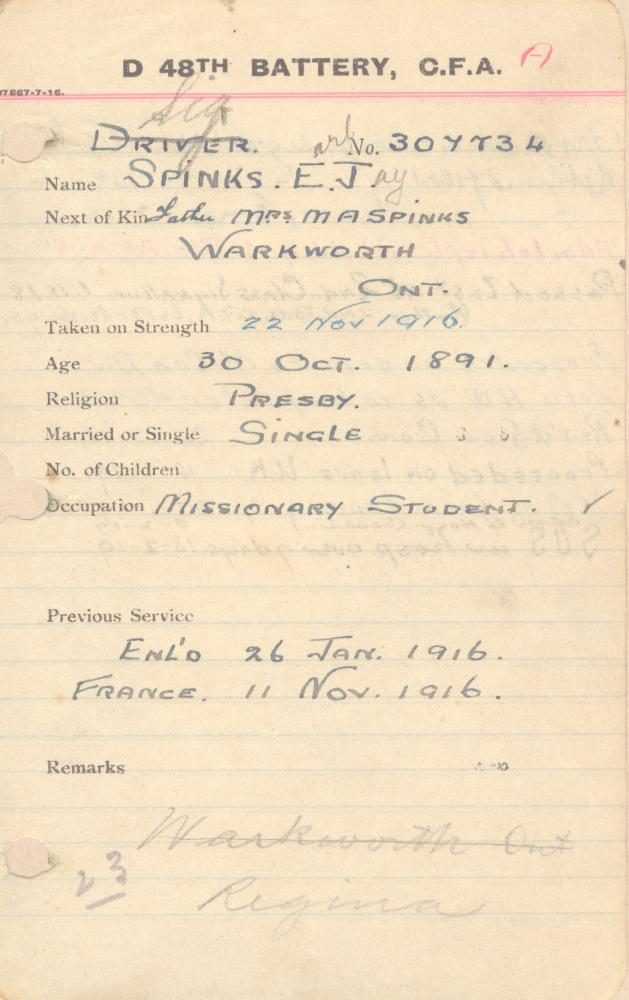 D 48TH BATTERY, C.F.A. A
97867-7-16.
Sig
DRIVER. No. 307734
Name SPINKS. E. Jay
Next of Kin Father MRS M A SPINKS
WARKWORTH
ONT.
Taken on Strength 22 NOV 1916.
Age 30 OCT. 1891.
Religion PRESBY.
Married or Single SINGLE
No. of Children
Occupation MISSIONARY STUDENT. ✓
Previous Service
ENL'D 26 JAN. 1916.
FRANCE. 11 NOV. 1916.
Remarks
Warkworth Ont
23
Regina